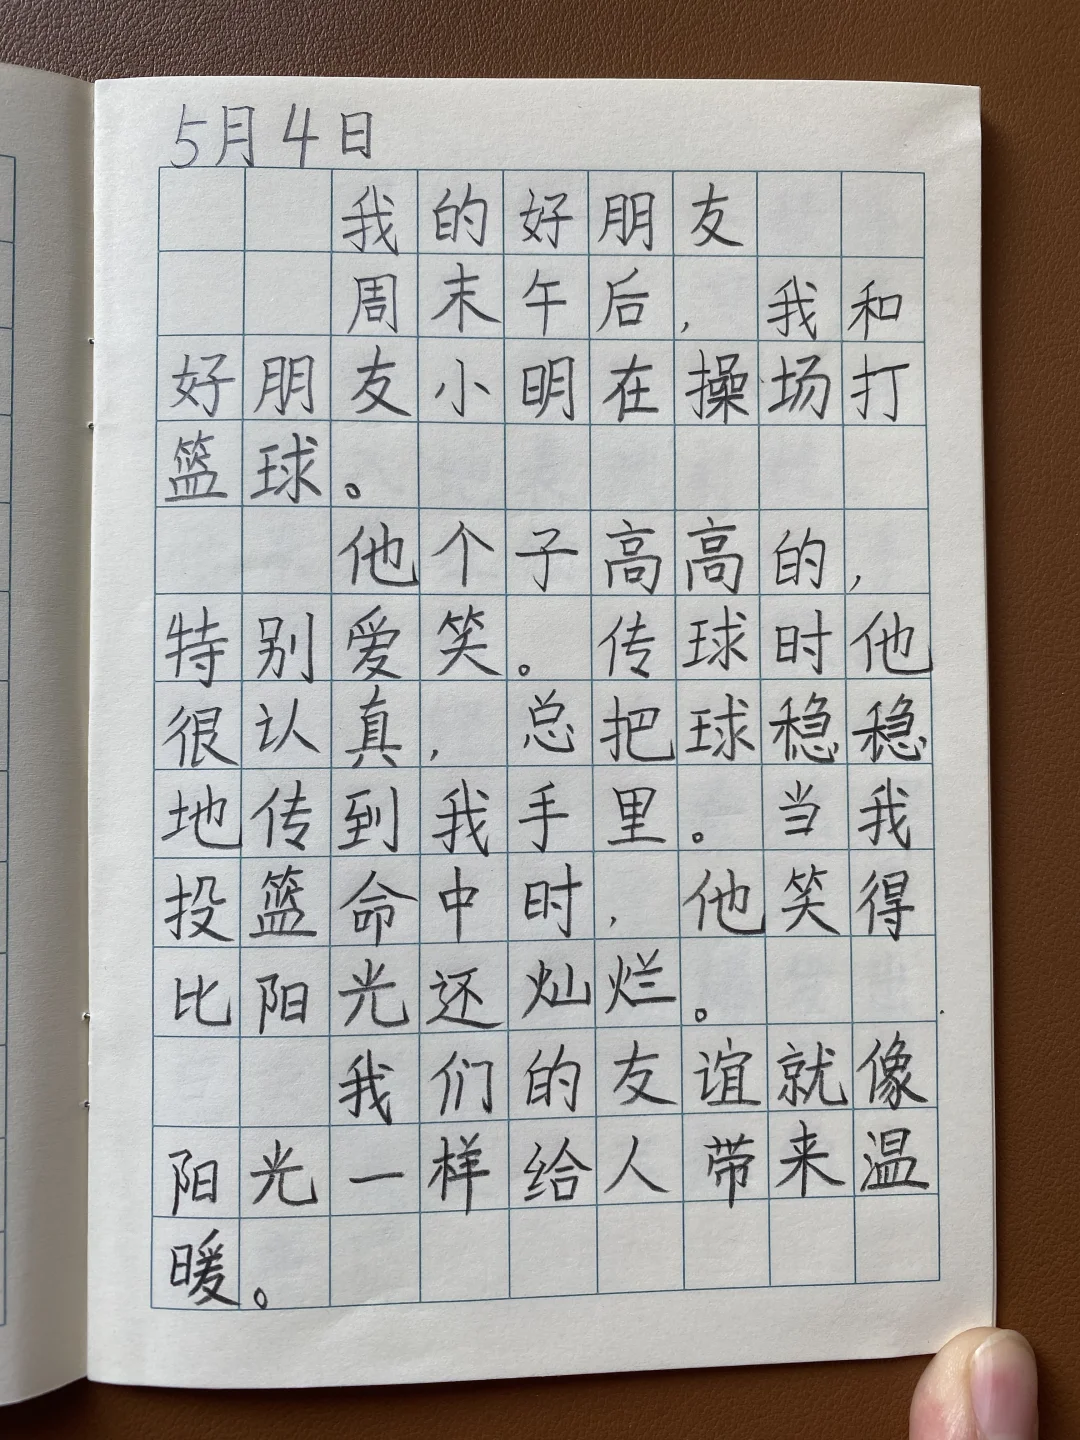 5月4日
我的好朋友
周末午后，我和
好朋友小明在操场打
篮球。
他个子高高的，
特别爱笑。传球时他
很认真，总把球稳稳
地传到我手里。当我
投篮命中时，他笑得
比阳光还灿烂。
我们的友谊就像
阳光一样给人带来温
暖。